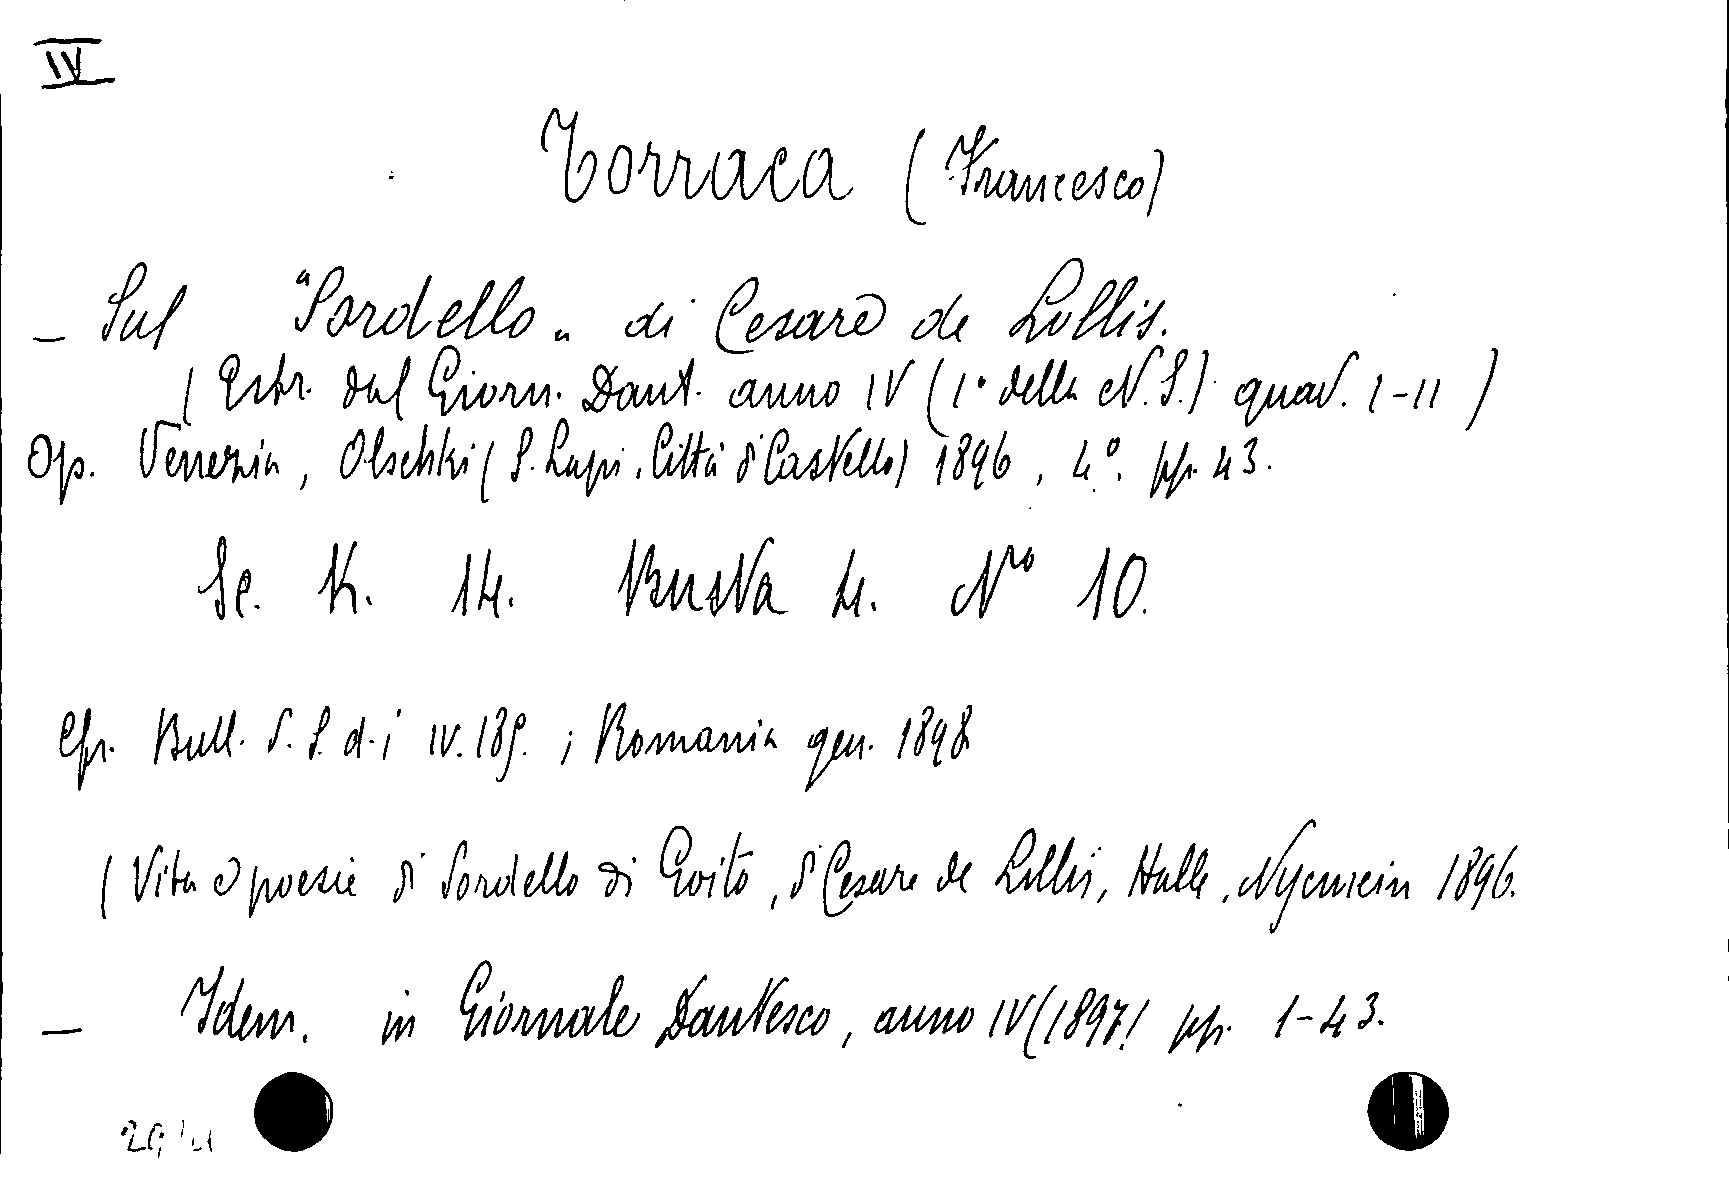 IV
Torraca (Francesco)
– Sul "Sordello„ di Cesare de Lollis.
(Estr. dal Giorn. Dant. anno IV (1° della N. S.) quad. I-II)
Op. Venezia, Olschki (S. Lapi. Città di Castello) 1896, 4°. pp. 43.
Sc. K. 14. Busta 4. Nro 10.
Cfr. Bull. S. d. i IV. 189. ; Romania gen. 1898
(Vita e poesie di Sordello di Goito, di Cesare de Lollis, Halle, 1896.
– Idem. in Giornale Dantesco, anno IV (1897) pp. 1-43.